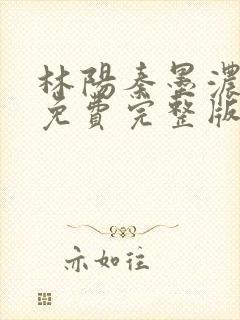 林陽秦墨濃
免費完整版
亦如往